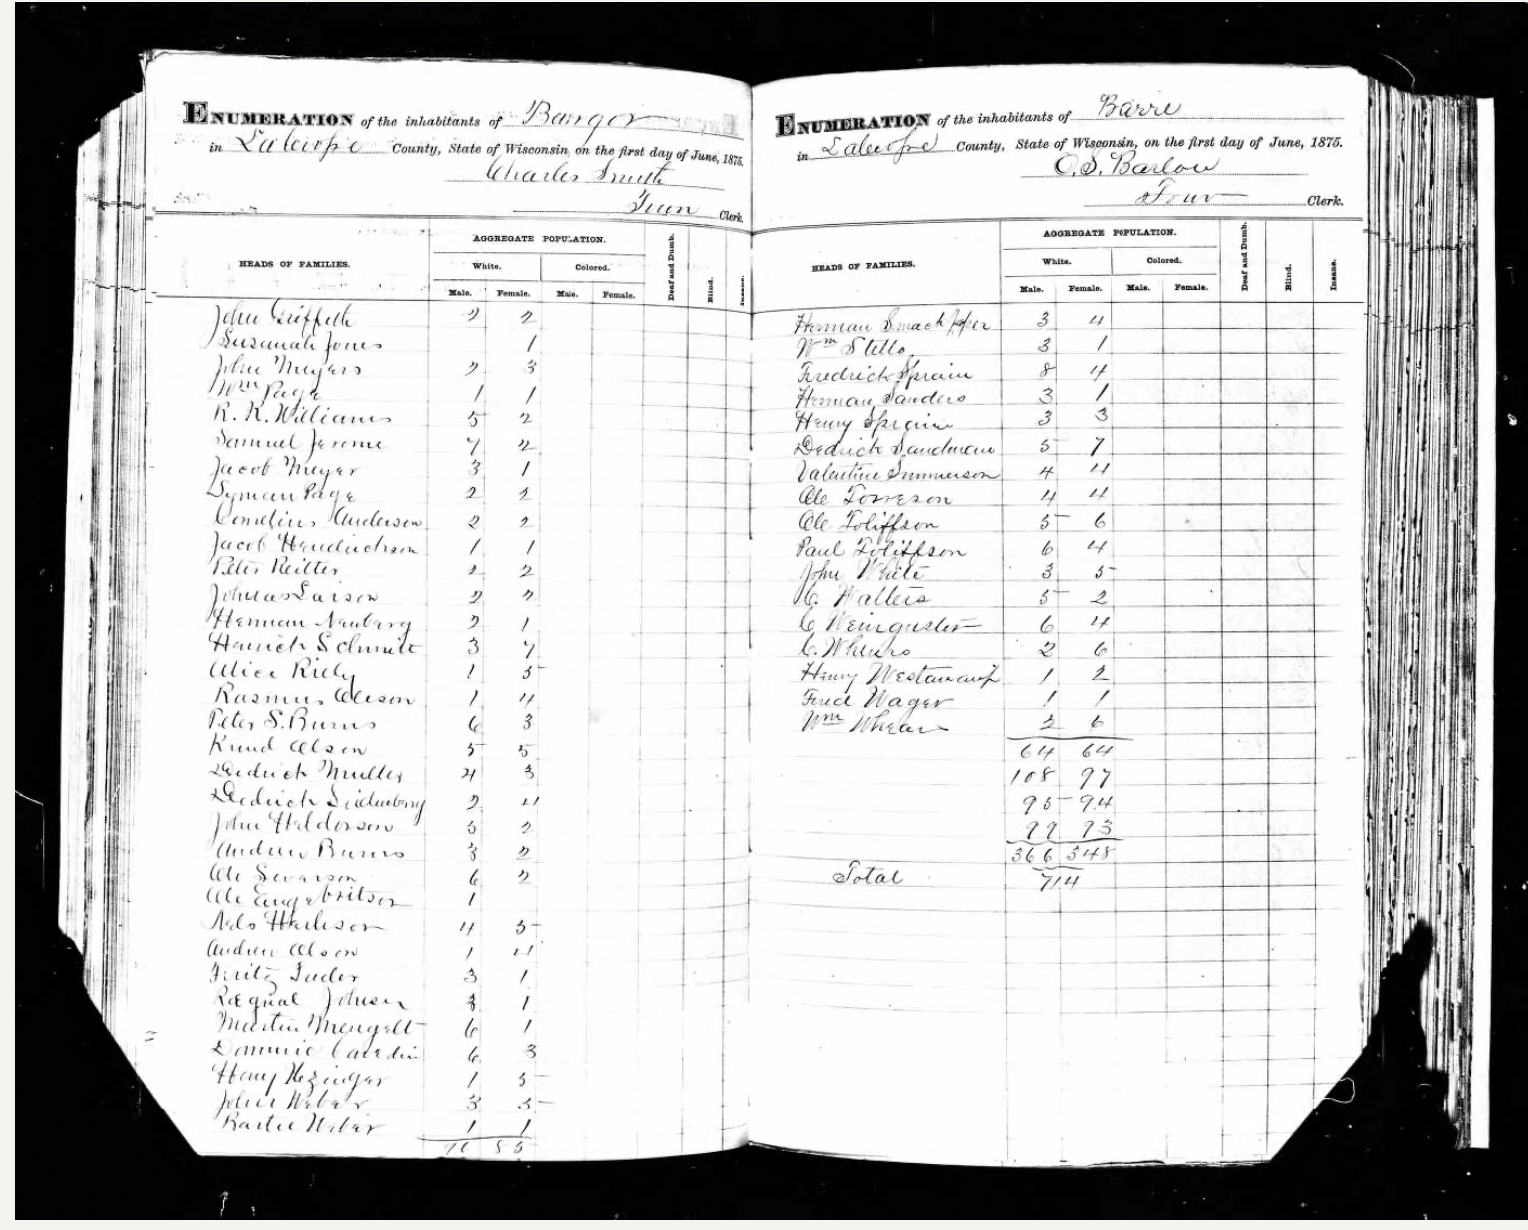 ENUMERATION of the inhabitants of Bangor
in LaCrosse County, State of Wisconsin, on the first day of June, 1875.
Charles Smith
Town Clerk.
HEADS OF FAMILIES.
AGGREGATE POPULATION.
White. Colored.
Male. Female. Male. Female. Deaf and Dumb. Blind. Insane.
John Griffith 2 2
Susanah Jones 1
John Meyers 2 3
Wm Page 1 1
R. R. Williams 5 2
Samuel Jerome 7 2
Jacob Meyer 3 1
Lyman Page 2 2
Cornelius Anderson 2 2
Jacob Hendrickson 1 1
Peter Reitter 2 2
Larson 2 2
Herman Neuberg 2 1
Henrich Schmitt 3 7
Alice Riely 1 5
Rasmus Oleson 1 4
Peter S. Burns 6 3
Knud Olson 5 5
Diedrich Muller 4 3
Diedrich 2 4
John Haldorson 5 2
Andrew Burns 3 2
Ole Swarson 6 2
Ole Engebritson 1
Nels 4 5
Andrew Olson 1 4
Fritz Tudor 3 1
Johnson 3 1
Martin Mengelt 6 1
Dominic 6 3
Henry 1 5
John Weber 3 5
Weber 1 1
ENUMERATION of the inhabitants of Barre
in LaCrosse County, State of Wisconsin, on the first day of June, 1875.
O. S. Barlow
Town Clerk.
HEADS OF FAMILIES.
AGGREGATE POPULATION.
White. Colored.
Male. Female. Male. Female. Deaf and Dumb. Blind. Insane.
Herman 3 4
Wm Stello 3 1
Fredrick Sprain 8 4
Herman Sanders 3 1
Henry Sprain 3 3
Dedrick Sandman 5 7
Valentine Simmerson 4 4
Ole Torreson 4 4
Ole Toliffson 5 6
Paul Toliffson 6 4
John White 3 5
C. Walters 5 2
C 6 4
C. 2 6
Henry 1 2
Fred Wager 1 1
Wm 2 6
64 64
108 97
95 94
99 93
366 348
Total 714